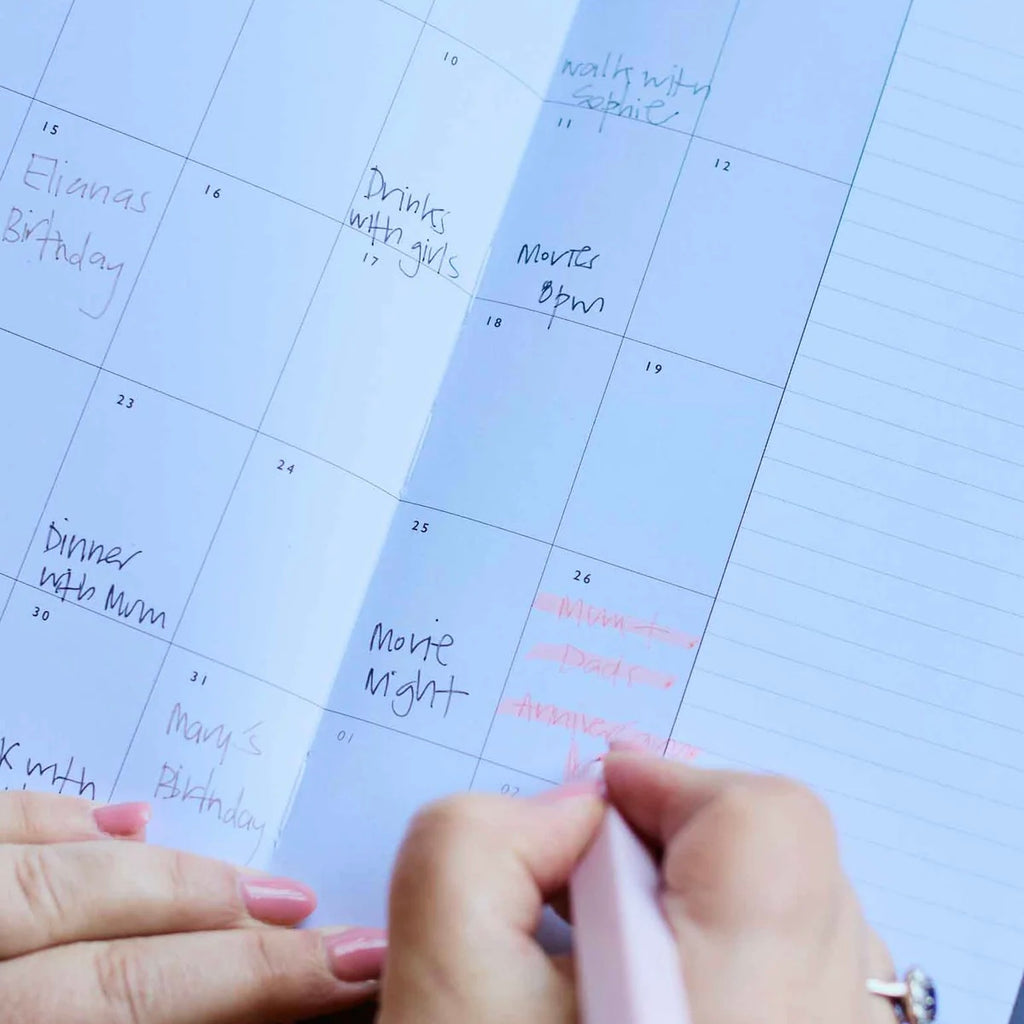 10
walk with
Sophie
11
12
15
Elianas
Birthday
16
Drinks
with girls
17
Movies
8pm
18
19
23
Dinner
with Mum
24
25
Movie
Night
26
Mum +
Dads
Anniversary
30
K with
31
Mary's
Birthday
01
02